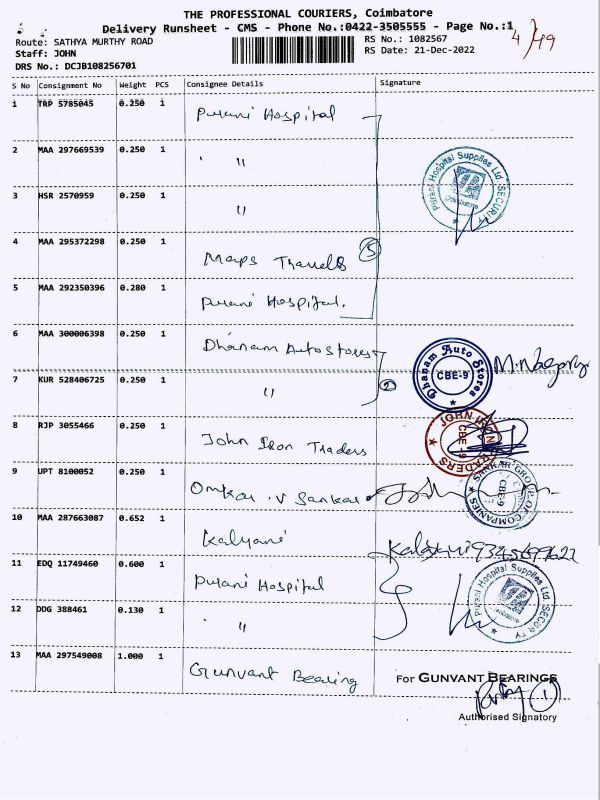 THE PROFESSIONAL COURIERS, Coimbatore
Delivery Runsheet - CMS - Phone No.:0422-3505555 - Page No.:1
4/49
Route: SATHYA MURTHY ROAD
RS No.: 1082567
Staff: JOHN
RS Date: 21-Dec-2022
DRS No.: DCJB108256701
S No Consignment No Weight PCS Consignee Details Signature
1 TRP 5785045 0.250 1 Purani Hospital
2 MAA 297669539 0.250 1 " 
PURANI HOSPITAL SUPPLIES LTD. SECURITY
3 HSR 2570959 0.250 1 "
4 MAA 295372298 0.250 1 Maps Travels 5
5 MAA 292350396 0.280 1 Purani Hospital.
6 MAA 300006398 0.250 1 Dhanam Auto stores
Dhanam Auto Stores CBE-9
7 KUR 528406725 0.250 1 " 2
8 RJP 3055466 0.250 1 John Iron Traders
JOHN IRON TRADERS CBE-9
9 UPT 8100052 0.250 1 Omkar . V Sankar
SANKAR GROUP OF COMPANIES CBE-9
10 MAA 287663087 0.652 1 Kalyani
11 EDQ 11749460 0.600 1 Purani Hospital
Purani Hospital Supplies Ltd. SECURITY
12 DDG 388461 0.130 1 "
13 MAA 297549008 1.000 1 Gunvant Bearing
For GUNVANT BEARINGS
1
Authorised Signatory